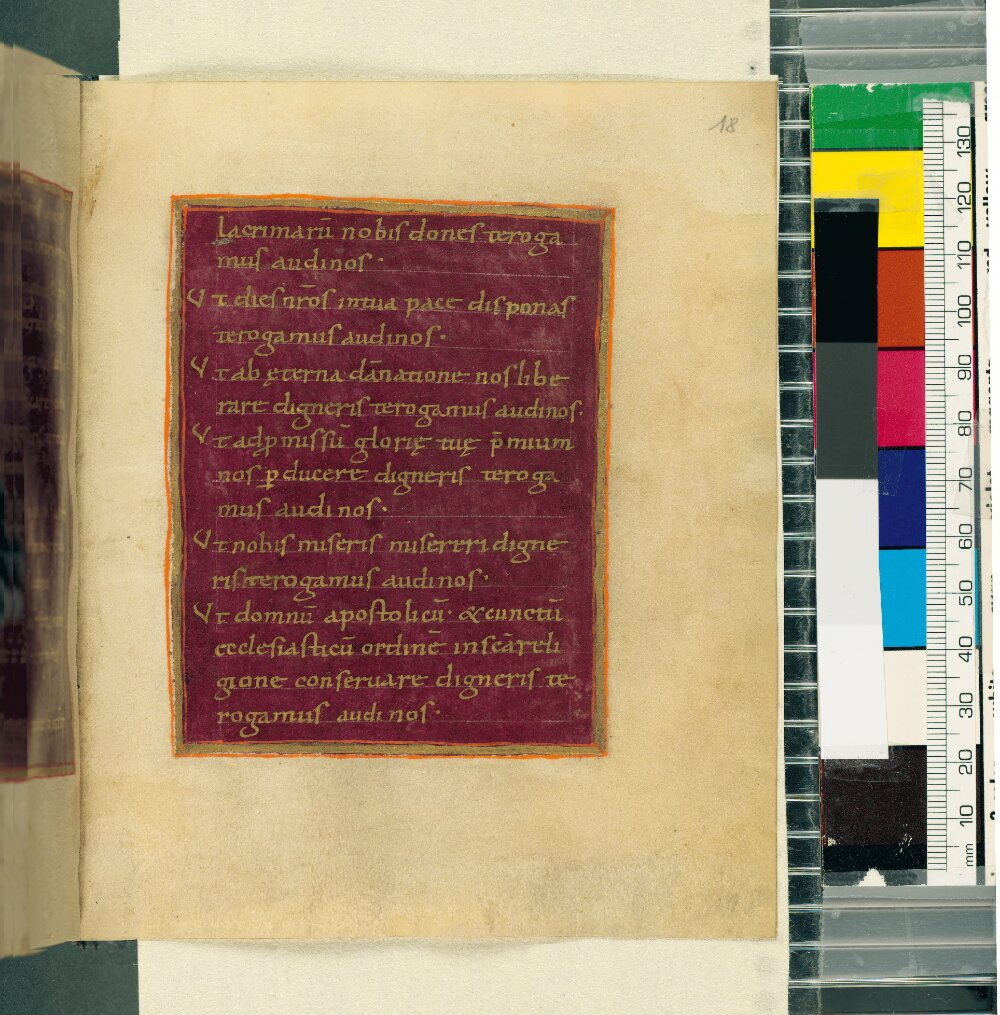 18
lacrimarū nobis dones teroga
mus audi nos·
Ut dies nr̄os in tua pace disponas
te rogamus audi nos·
Ut ab ęterna dānatione nos libe
rare digneris te rogamus audi nos·
Ut ad ꝓmissū glorię tuę p̄mium
nos ꝑducere digneris te roga
mus audi nos·
Ut nobis miseris misereri digne
ris te rogamus audi nos·
Ut domnū apostolicū· & cunctū
ecclesiasticū ordinē in sc̄a reli
gione conseruare digneris te
rogamus audi nos·
130
120
110
100
90
80
70
60
50
40
30
20
10
mm